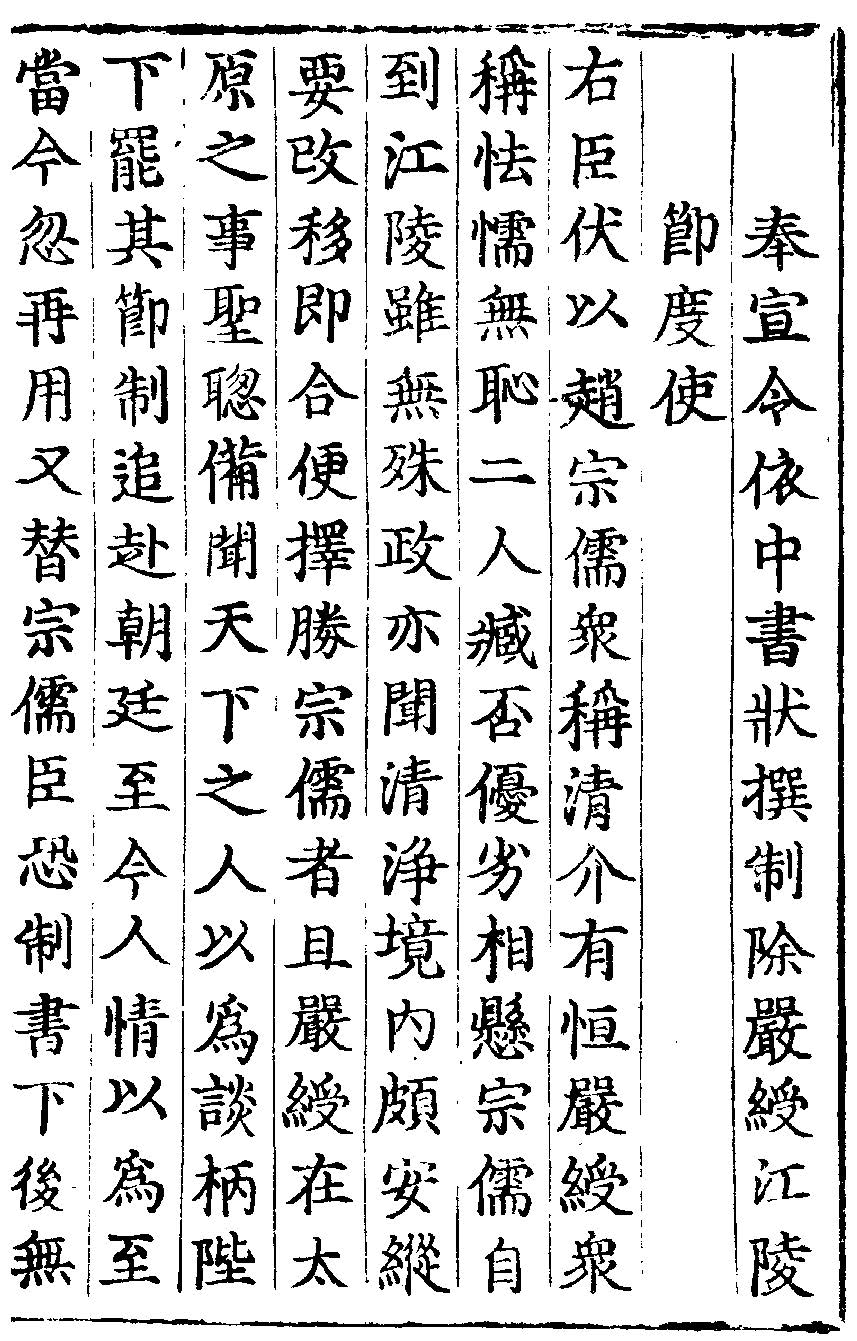 奉宣令依中書狀撰制除嚴綬江陵
節度使
右臣伏以趙宗儒衆稱清介有恒嚴綬衆
稱怯懦無恥二人臧否優劣相懸宗儒自
到江陵雖無殊政亦聞清浄境内頗安縱
要改移即合便擇勝宗儒者且嚴綬在太
原之事聖聦備聞天下之人以爲談柄陛
下罷其節制追赴朝廷至今人情以爲至
當今忽再用又替宗儒臣恐制書下後無